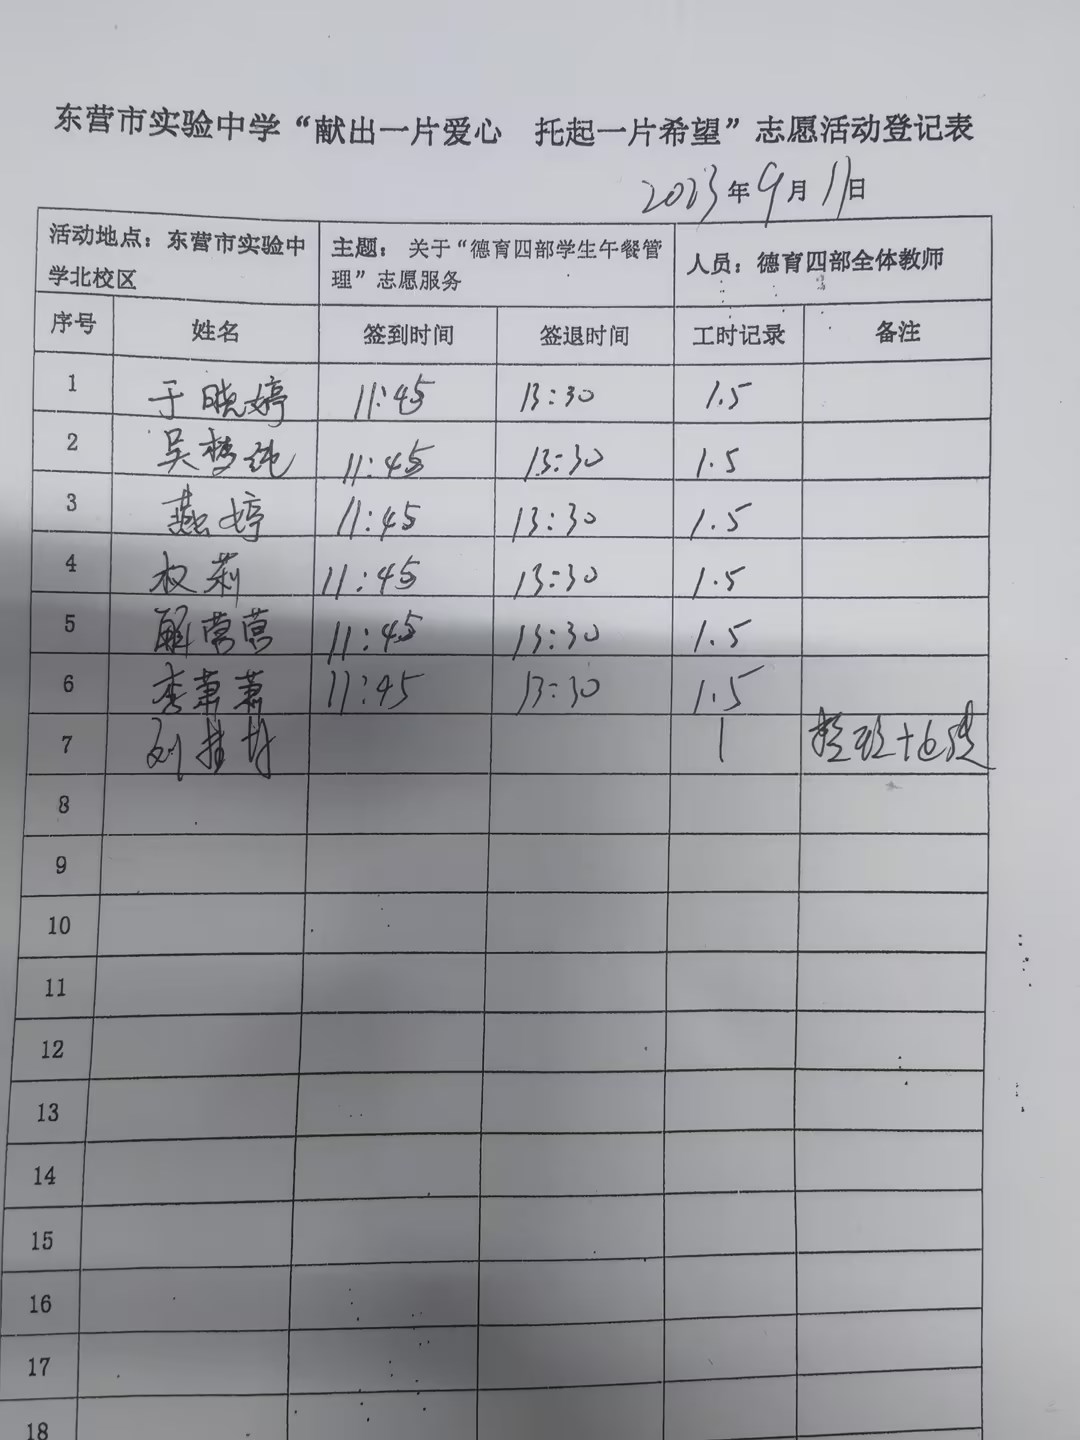 东营市实验中学“献出一片爱心 托起一片希望”志愿活动登记表
2023年9月11日
活动地点：东营市实验中学北校区 主题：关于“德育四部学生午餐管理”志愿服务 人员：德育四部全体教师
序号 姓名 签到时间 签退时间 工时记录 备注
1 于晓婷 11:45 13:30 1.5
2 吴梦纯 11:45 13:30 1.5
3 燕婷 11:45 13:30 1.5
4 权莉 11:45 13:30 1.5
5 解营营 11:45 13:30 1.5
6 李萧萧 11:45 13:30 1.5
7 刘 1
8
9
10
11
12
13
14
15
16
17
18